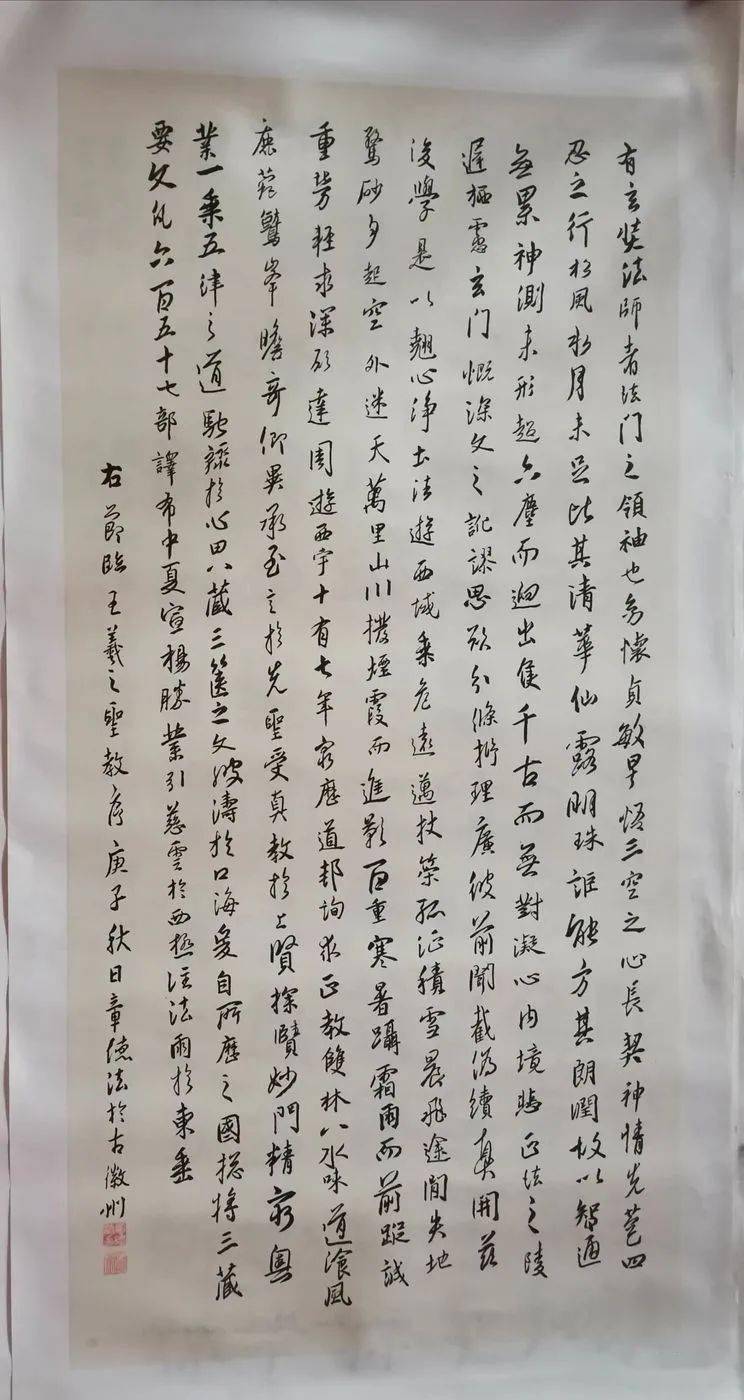 有玄奘法师者法门之領袖也幼懷貞敏早悟三空之心長契神情先苞四
忍之行松風水月未足比其清華仙露明珠詎能方其朗潤故以智通
無累神測未形超六塵而迥出隻千古而無對凝心内境悲正法之陵
遲栖慮玄门慨深文之訛謬思欲分條析理廣彼前聞截偽續真開兹
後學是以翹心浄土法遊西域乘危遠邁杖策孤征積雪晨飛途閒失地
驚砂夕起空外迷天萬里山川撥煙霞而進影百重寒暑躡霜雨而前蹤誠
重勞輕求深願達周遊西宇十有七年窮歷道邦詢求正教雙林八水味道湌風
鹿菀鷲峯瞻奇仰異承至言於先聖受真教於上賢探賾妙門精窮奧
業一乘五律之道馳驟於心田八藏三篋之文波濤於口海爰自所歷之國揔将三藏
要文凡六百五十七部譯布中夏宣揚勝業引慈雲於西極注法雨於東垂
右節臨王羲之聖教序庚子秋日章德法於古徽州